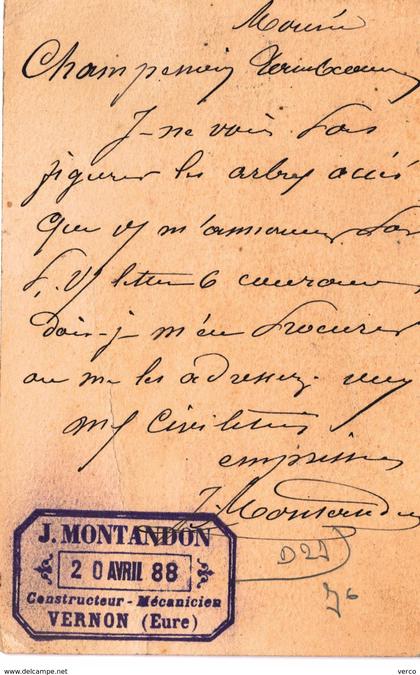 Champenois
Je ne vois pas
figurer les arbres
que vs m'annoncez par
V/ lettre 6 courant
dois-je m'en procurer
ou me les adressez-vous
mes civilités
empressées
J. Montandon
J. MONTANDON
20 AVRIL 88
Constructeur - Mécanicien
VERNON (Eure)
D21
76
© delcampe.net
verco